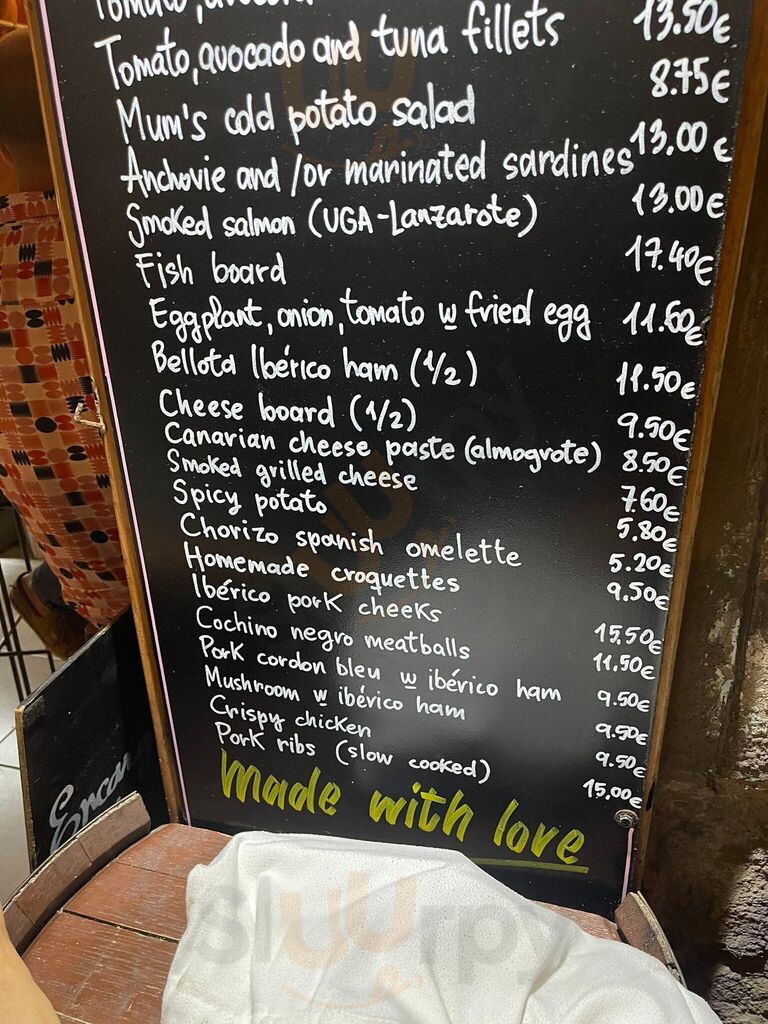 Tomato, avocado
Tomato, avocado and tuna fillets 13.50€
Mum's cold potato salad 8.75€
Anchovie and /or marinated sardines 13.00€
Smoked salmon (UGA-Lanzarote) 13.00€
Fish board 17.40€
Eggplant, onion, tomato w fried egg 11.60€
Bellota Ibérico ham (1/2) 11.50€
Cheese board (1/2) 9.50€
Canarian cheese paste (almogrote) 8.50€
Smoked grilled cheese 7.60€
Spicy potato 5.80€
Chorizo spanish omelette 5.20€
Homemade croquettes 9.50€
Ibérico pork cheeks 15.50€
Cochino negro meatballs 11.50€
Pork cordon bleu w ibérico ham 9.50€
Mushroom w ibérico ham 9.50€
Crispy chicken 9.50€
Pork ribs (slow cooked) 15,00€
Made with love
Sluurpy